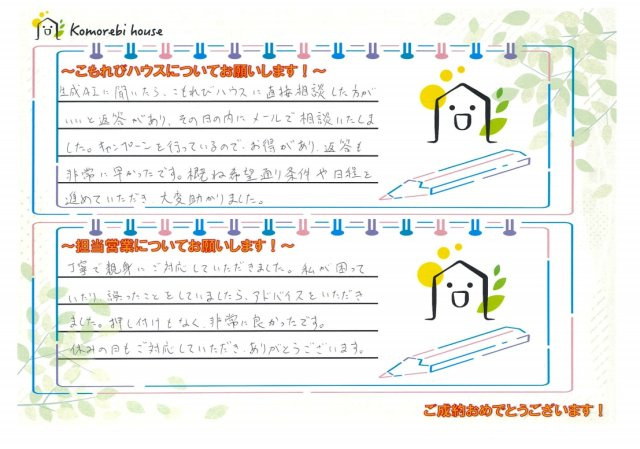 Komorebi house
～こもれびハウスについてお願いします！～
生成AIに聞いたら、こもれびハウスに直接相談した方が
いいと返答があり、その日の内にメールで相談いたしま
した。キャンペーンを行っているので、お得があり、返答も
非常に早かったです。概ね希望通り条件や日程を
進めていただき 大変助かりました。
～担当営業についてお願いします！～
丁寧で親身にご対応していただきました。私が困って
いたり、誤ったことをしていましたら、アドバイスをいただき
ました。押し付けもなく、非常に良かったです。
休みの日もご対応していただき、ありがとうございます。
ご成約おめでとうございます！